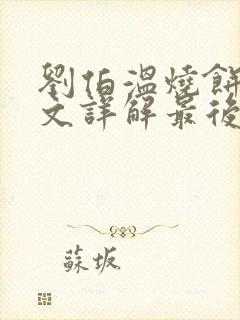 劉伯溫燒餅
文詳解最後
蘇坂